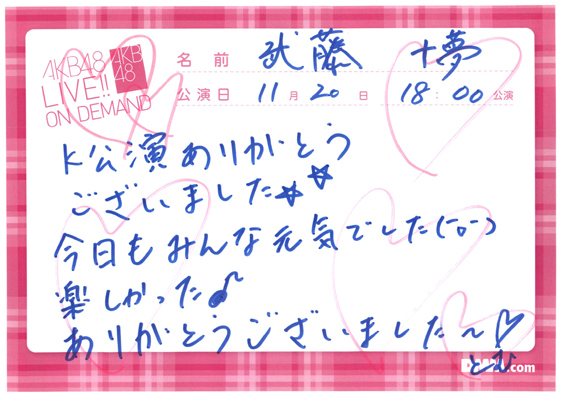 AKB48
LIVE!!
ON DEMAND
AKB
48
名前 武藤 十夢
公演日 11月20日 18:00公演
K公演ありがとう
ございました★☆
今日もみんな元気でした(-o-)
楽しかった♪
ありがとうございました~♡
とむ
.com